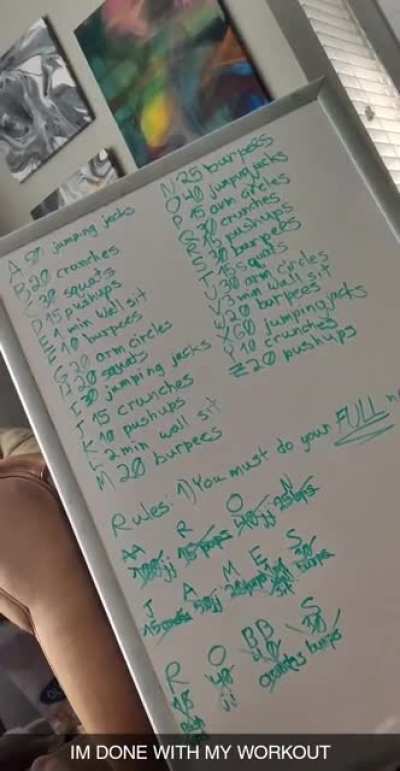 A 50 jumping jacks
B 20 crunches
C 30 squats
D 15 pushups
E 1 min wall sit
F 10 burpees
G 20 arm circles
H 20 squats
I 30 jumping jacks
J 15 crunches
K 10 pushups
L 2 min wall sit
M 20 burpees
N 25 burpees
O 40 jumping jacks
P 15 arm circles
Q 30 crunches
R 15 pushups
S 30 burpees
T 15 squats
U 30 arm circles
V 3 min wall sit
W 20 burpees
X 60 jumping jacks
Y 10 crunches
Z 20 pushups
Rules: 1) You must do your FULL
AA R O N
100jj 15 pups 40jj 25 bps
J A M E S
50jj 30 burps
sit
R O BB S
15 40 40 30
jj crunches burps
IM DONE WITH MY WORKOUT